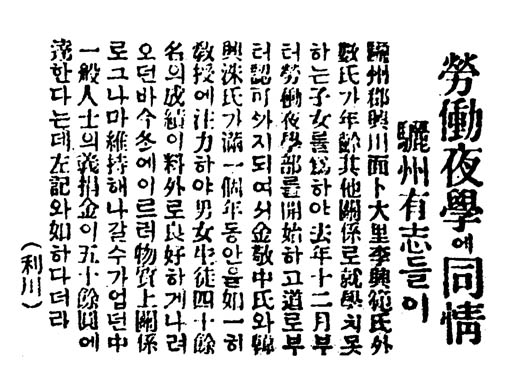 勞働夜學에同情
驪州有志들이
驪州郡興川面卜大里李興範氏外
數氏가年齡其他關係로就學치못
하는子女를爲하야去年十二月부
터勞働夜學部를開始하고道로부
터認可ᄭᅡ지되여서金敬中氏와韓
興洙氏가滿一個年동안을如一히
敎授에注力하야男女生徒四十餘
名의成績이料外로良好하게나려
오던바今冬에이르러物質上關係
로그나마維持해나갈수가업던中
一般人士의義捐金이五十餘圓에
達한다는데左記와如하다더라
(利川)